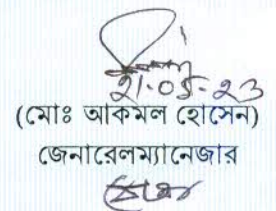 21-05-23
(মোঃ আকমল হোসেন)
জেনারেলম্যানেজার